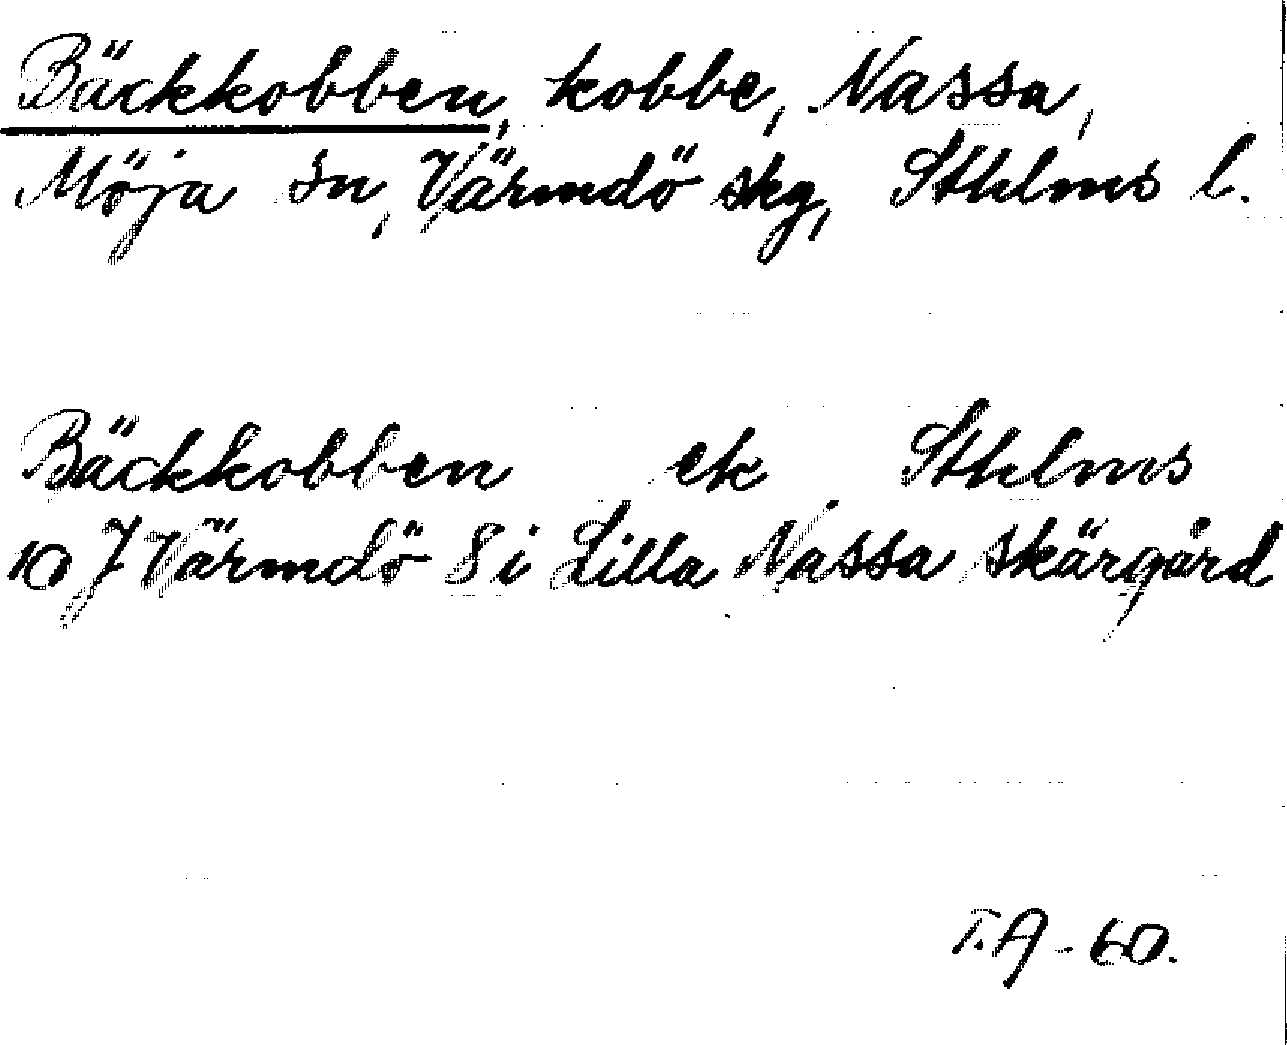 Bäckkobben, kobbe, Nassa,
Möja sn, Värmdö skg, Sthlms l.
Bäckkobben ek Sthlms
10 J Värmdö 8 i Lilla Nassa skärgård
T.A - 60.